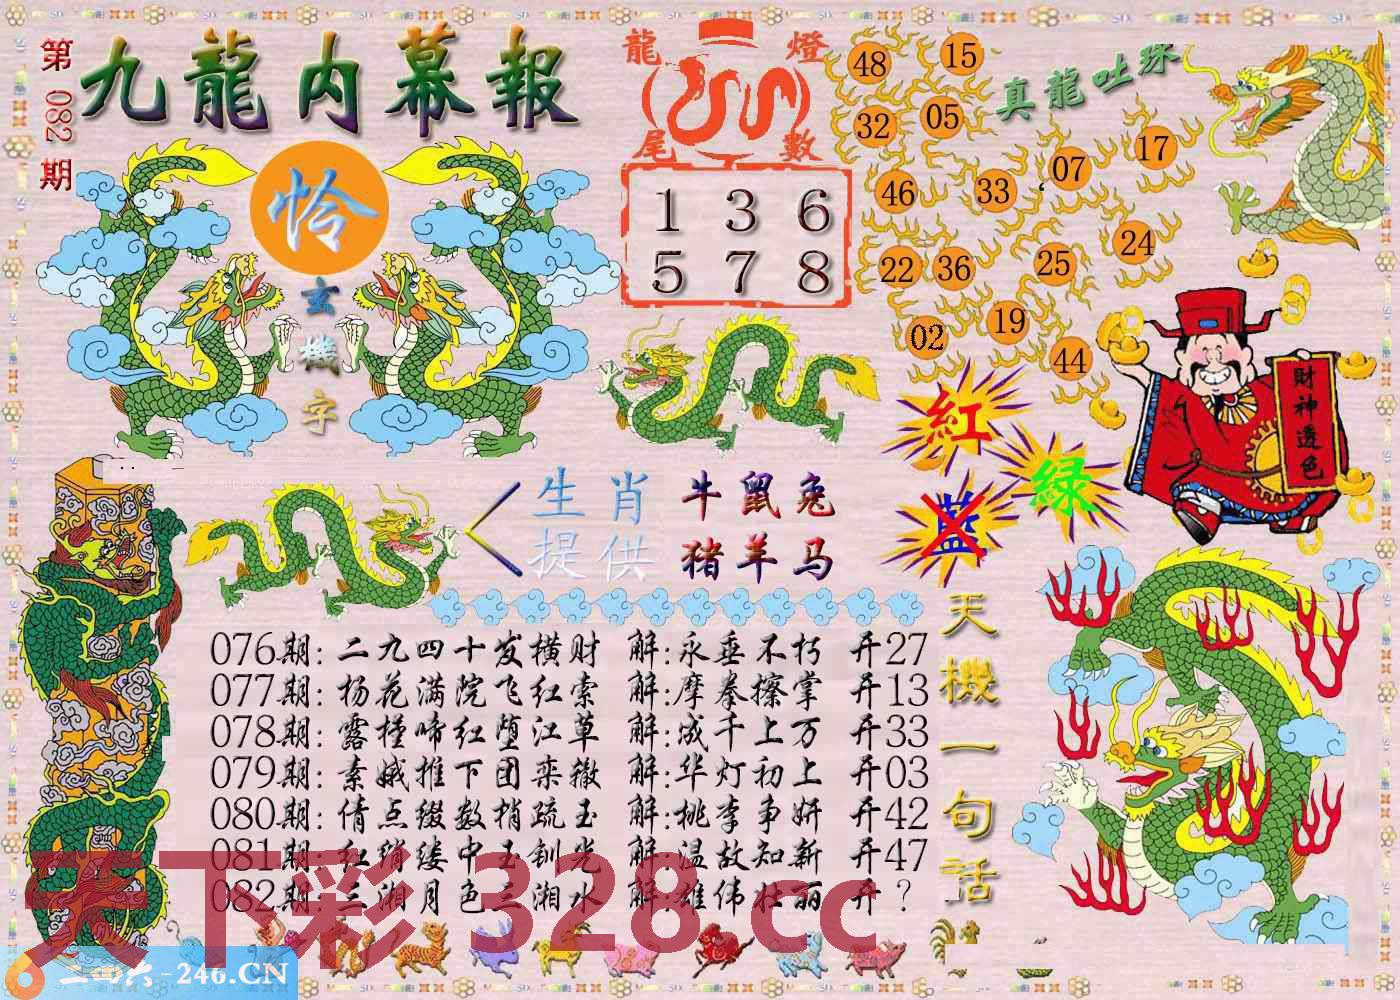 第082期
九龍内幕報
怜
玄機字
龍燈尾數
1 3 6
5 7 8
真龍吐珠
48 15
32 05
46 33 07 17
22 36 25 24
02 19 44
紅
绿
藍
財神透色
生肖提供
牛鼠兔
猪羊马
天機一句話
076期: 二九四十发横财 解:永垂不朽 开27
077期: 杨花满院飞红索 解:摩拳擦掌 开13
078期: 露槿啼红堕江草 解:成千上万 开33
079期: 素娥推下团栾辙 解:华灯初上 开03
080期: 倩点缀数梢疏玉 解:桃李争妍 开42
081期: 红绡缕中玉钏光 解:温故知新 开47
082期: 三湘月色三湘水 解:雄伟壮丽 开？
天下彩 328.cc
二四六-246.CN